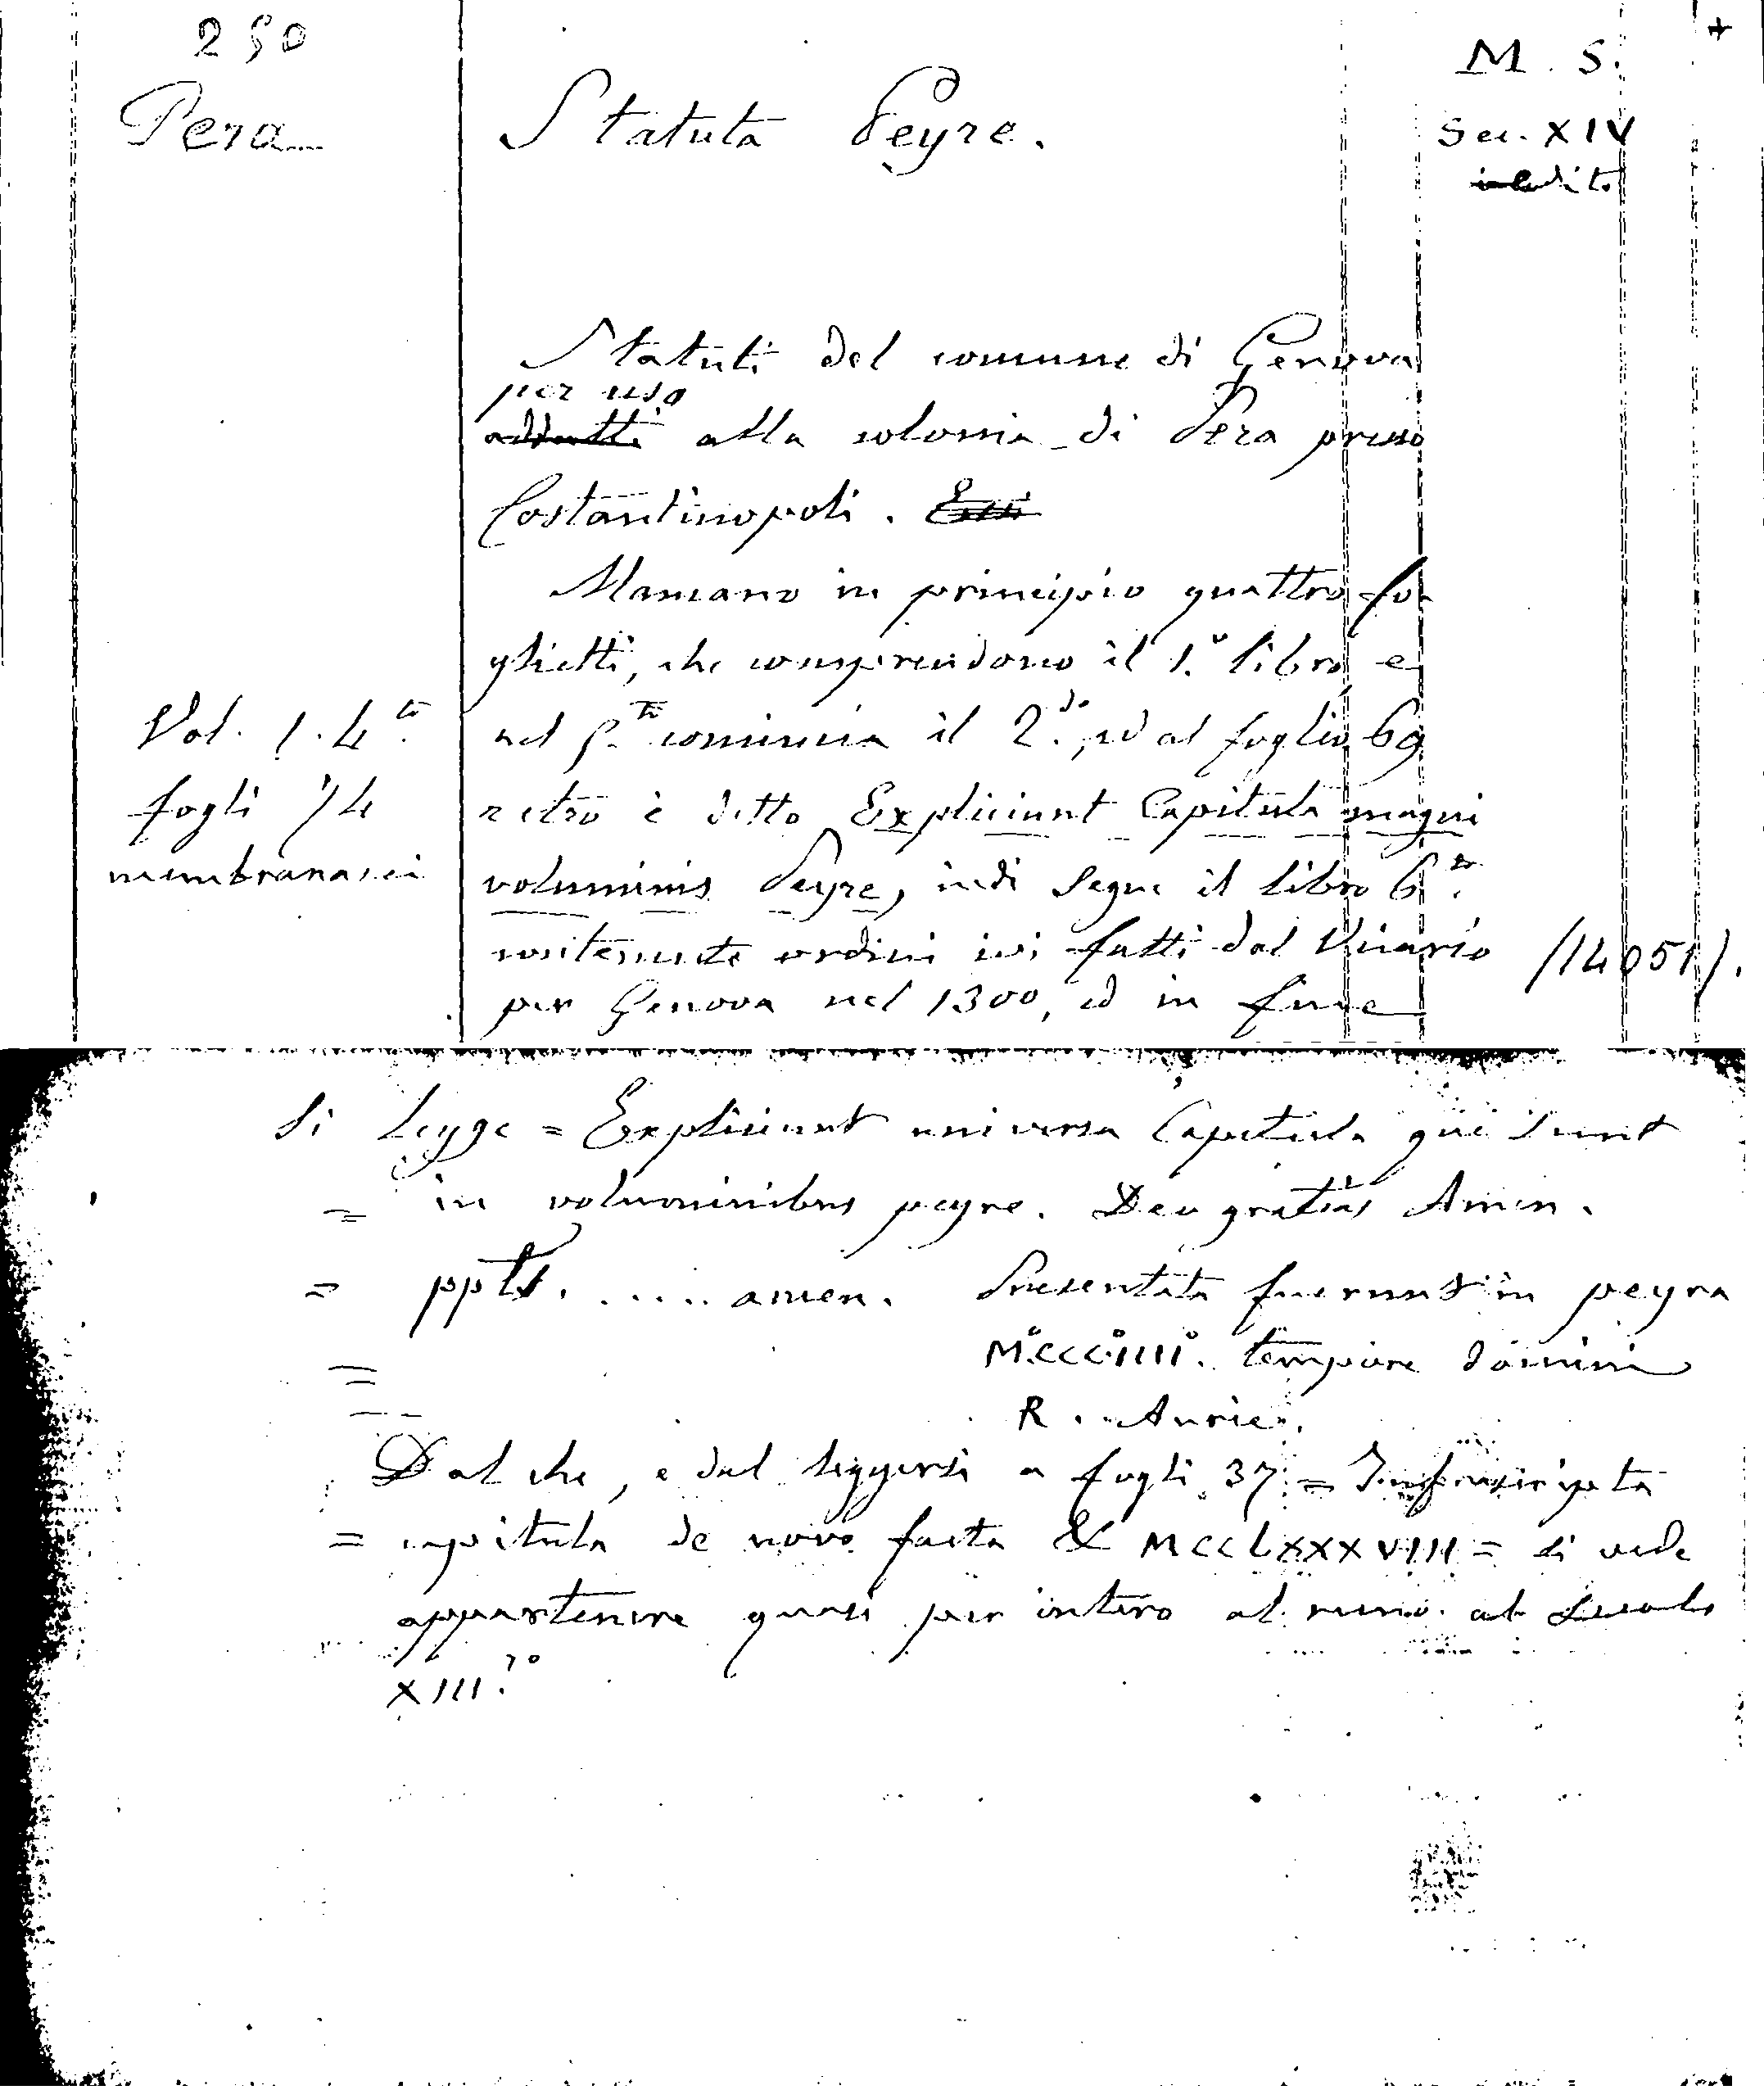 250
M. S.
+
Pera
Statuta Peyre.
Sec. XIV
inedito
Statuti del comune di Genova
per uso
addetti alla colonia di Pera presso
Costantinopoli.
Mancano in principio quattro fo-
glietti, che comprendono il 1.º libro e
Vol. 1. 4.to
nel 5.to comincia il 2.do, ed al foglio 69
fogli 74
retro è detto Expliciunt Capitula magni
membranacei
voluminis Peyre, indi segue il libro 6.to
contenente ordini ivi fatti dal Vicario
/14051/.
per Genova nel 1300, ed in fine
si legge = Expliciunt universa Capitula que sunt
= in voluminibus peyre. Deo gratias Amen.
= ppls. ..... amen. Presentata fuerunt in peyra
= M.º CCC.º IIII.º tempore domini
R. Aurie.
Dal che, e dal leggersi a fogli 37 = Infrascripta
= capitula de novo facta & MCCLXXXVIII = si vede
appartenere quasi per intero al meno al secolo
XIII.º